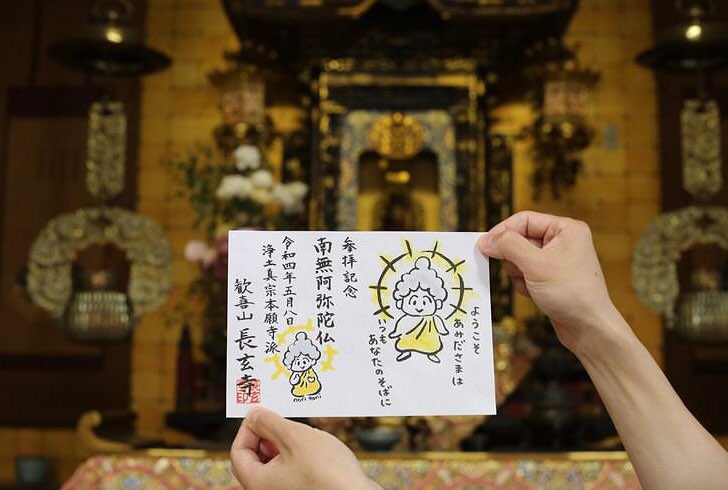 ようこそ
あみださまは
いつもあなたのそばに
参拝記念
南無阿弥陀仏
令和四年五月八日
浄土真宗本願寺派
歓喜山 長玄寺
nori tomi